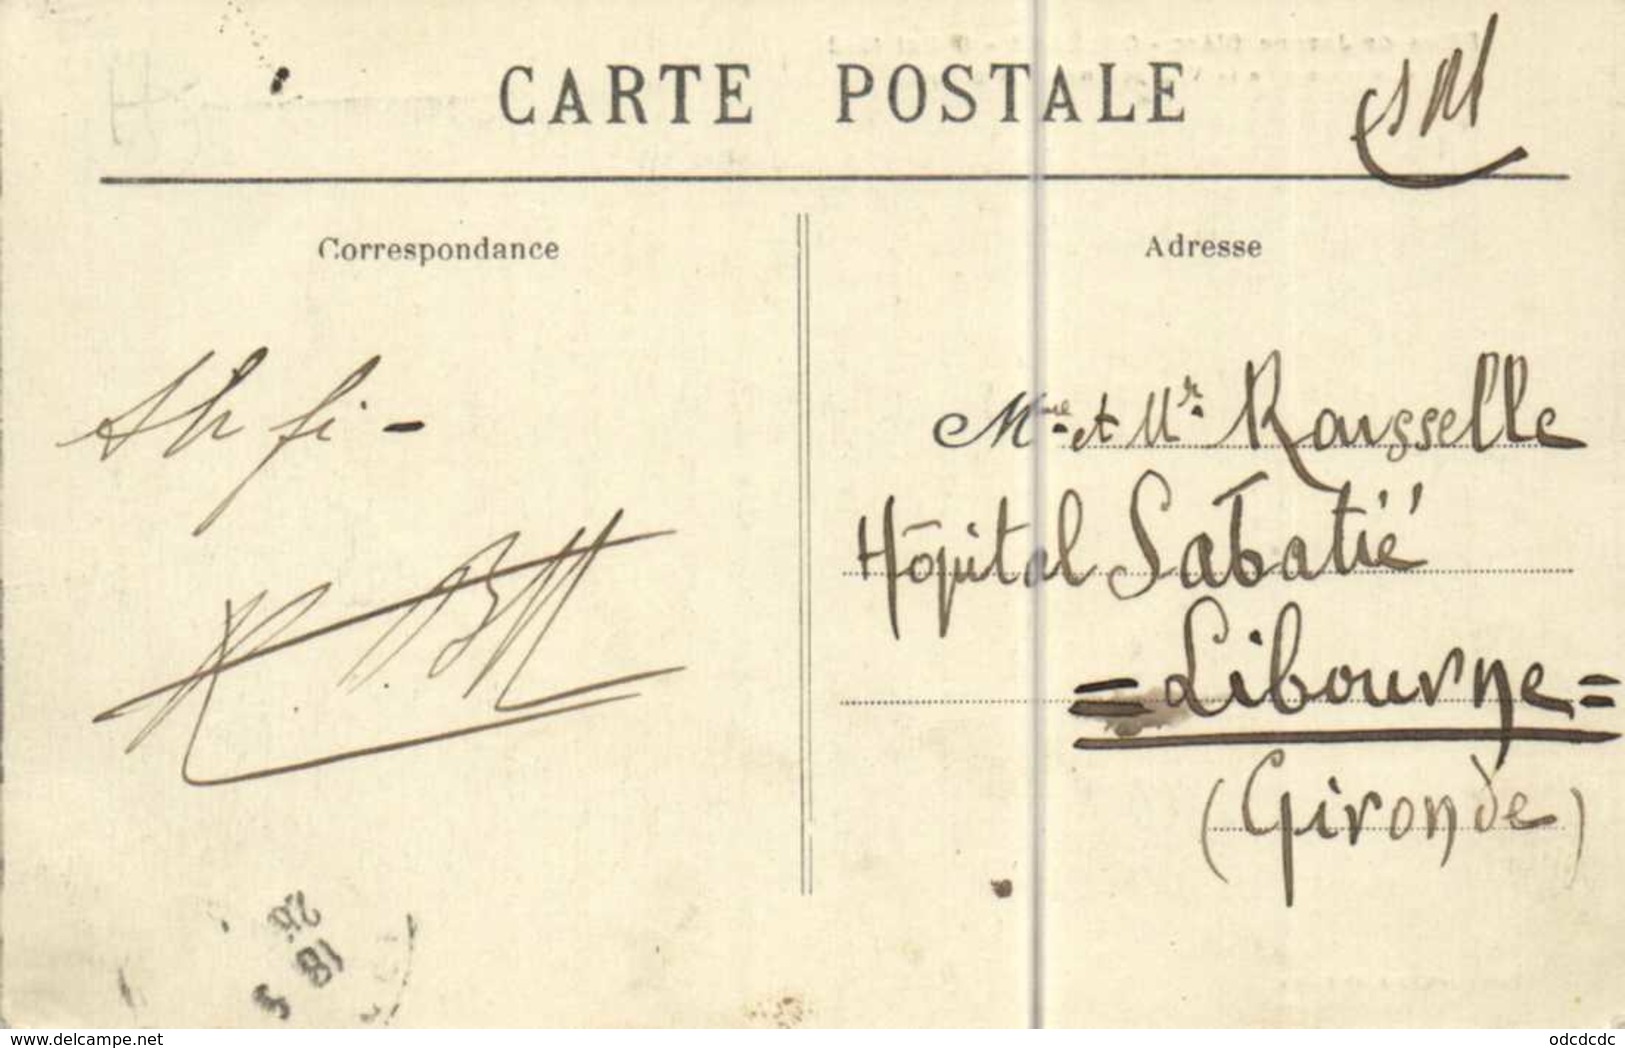 CARTE POSTALE
Correspondance
Adresse
Mme et Mr Rousselle
Hôpital Sabatié
= Libourne =
(Gironde)
26
18
5
www.delcampe.net
odcdcdc